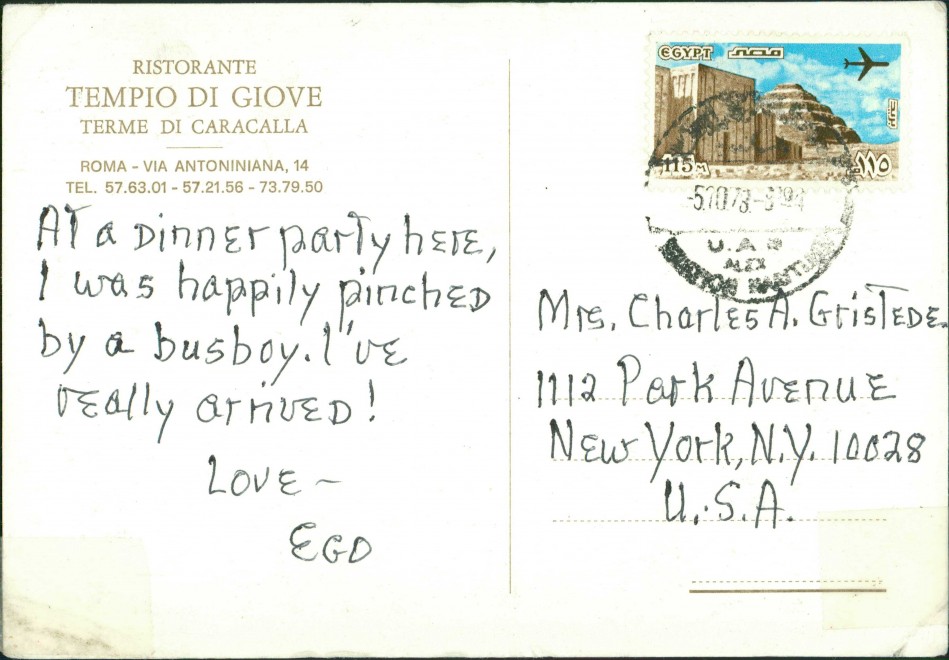 RISTORANTE
TEMPIO DI GIOVE
TERME DI CARACALLA
ROMA - VIA ANTONINIANA, 14
TEL. 57.63.01 - 57.21.56 - 73.79.50
At a dinner party here,
I was happily pinched
by a busboy. I've
really arrived!
Love ~
EGO
EGYPT مصر
115 M ١١٥
U.A.R
ALEX
Mrs. Charles A. Gristede
1112 Park Avenue
New York, N.Y. 10028
U.S.A.